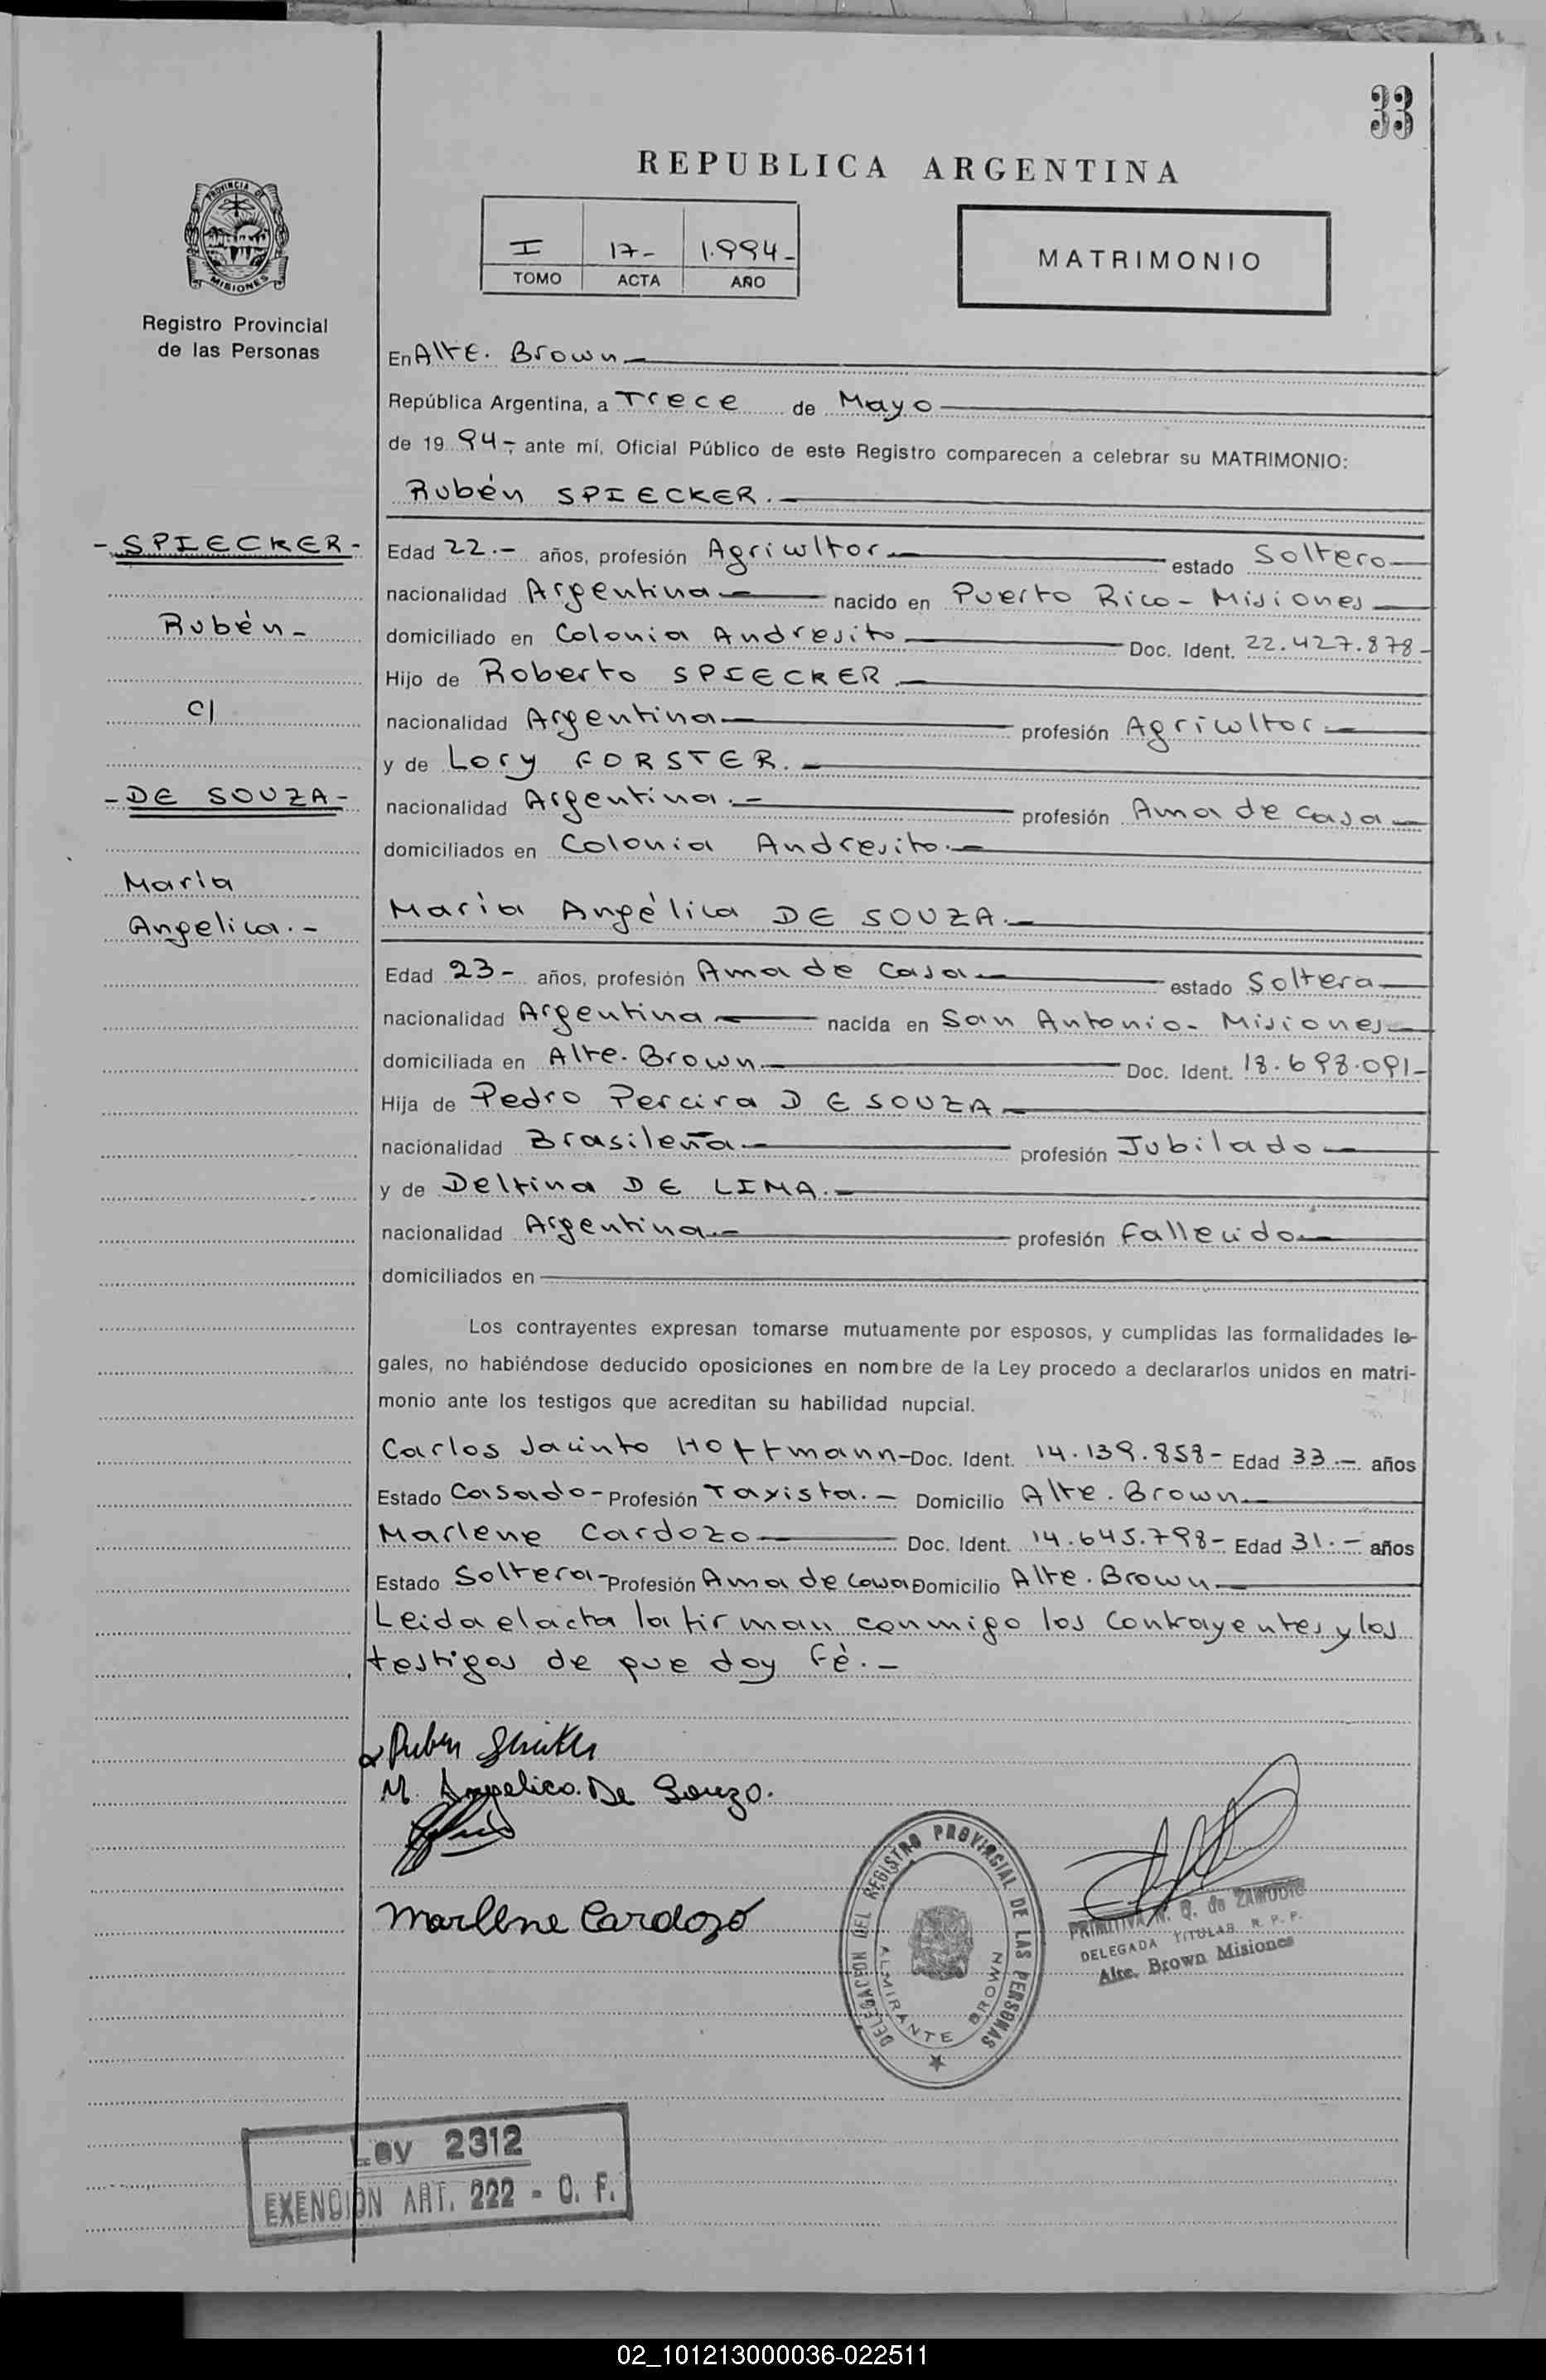 33
REPUBLICA ARGENTINA
PROVINCIA DE
MISIONES
I 17- 1.994-
TOMO ACTA AÑO
MATRIMONIO
Registro Provincial
de las Personas
En Alte. Brown
República Argentina, a Trece de Mayo
de 19 94-, ante mí, Oficial Público de este Registro comparecen a celebrar su MATRIMONIO:
Rubén SPIECKER.-
- SPIECKER -
Edad 22.- años, profesión Agricultor.- estado Soltero-
nacionalidad Argentina- nacido en Puerto Rico - Misiones-
Rubén -
domiciliado en Colonia Andresito- Doc. Ident. 22.427.878-
Hijo de Roberto SPIECKER.-
c/
nacionalidad Argentina- profesión Agricultor-
y de Lory FORSTER.-
- DE SOUZA -
nacionalidad Argentina.- profesión Ama de Casa-
domiciliados en Colonia Andresito.-
María
María Angélica DE SOUZA.-
Angelica.-
Edad 23- años, profesión Ama de Casa- estado Soltera-
nacionalidad Argentina- nacida en San Antonio- Misiones-
domiciliada en Alte. Brown.- Doc. Ident. 18.698.091-
Hija de Pedro Pereira D E SOUZA-
nacionalidad Brasileña.- profesión Jubilado-
y de Delfina DE LIMA.-
nacionalidad Argentina.- profesión Fallecido.-
domiciliados en
Los contrayentes expresan tomarse mutuamente por esposos, y cumplidas las formalidades le-
gales, no habiéndose deducido oposiciones en nombre de la Ley procedo a declararlos unidos en matri-
monio ante los testigos que acreditan su habilidad nupcial.
Carlos Jacinto Hoffmann- Doc. Ident. 14.139.858- Edad 33.- años
Estado Casado- Profesión Taxista.- Domicilio Alte. Brown-
Marlene Cardozo- Doc. Ident. 14.645.798- Edad 31.- años
Estado Soltera- Profesión Ama de Casa Domicilio Alte. Brown-
Leida el acta la firman conmigo los Contrayentes y los
testigos de que doy Fé.-
Ruben
M. Angelica De Souza.
Marlene Cardozo
DELEGACION DEL REGISTRO PROVINCIAL DE LAS PERSONAS
ALMIRANTE BROWN
PRIMITIVA N. Q. de ZAMUDIO
DELEGADA TITULAR R. P. P.
Alte. Brown Misiones
Ley 2312
EXENCION ART. 222 - C. F.
02_101213000036-022511